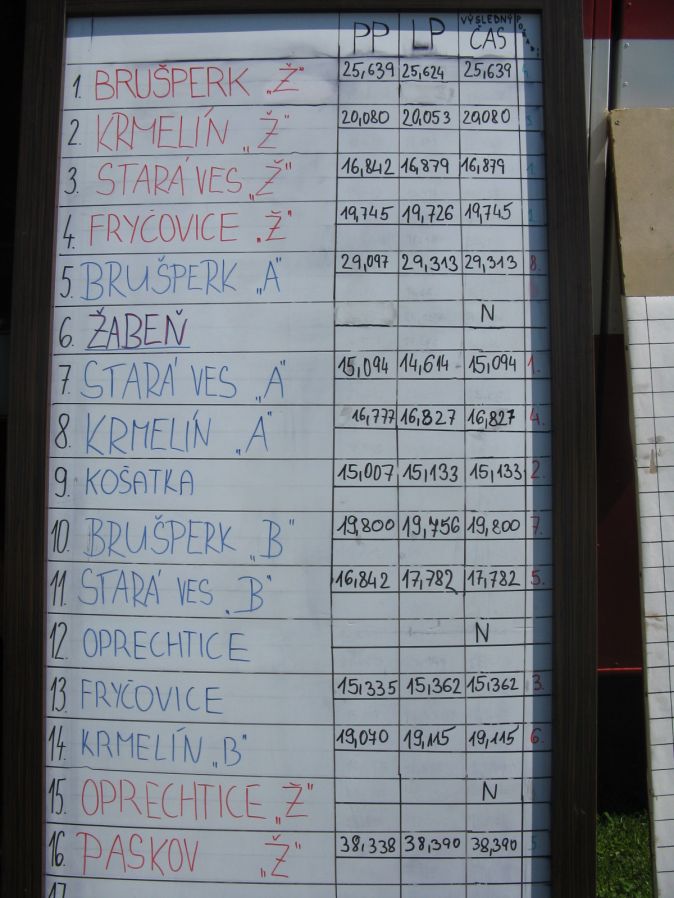 PP LP VÝSLEDNÝ ČAS POŘADÍ
1. BRUŠPERK „Ž" 25,639 25,624 25,639 4.
2. KRMELÍN „Ž" 20,080 20,053 20,080 3.
3. STARÁ VES „Ž" 16,842 16,879 16,879 1.
4. FRYČOVICE „Ž" 19,745 19,726 19,745 2.
5. BRUŠPERK „A" 29,097 29,313 29,313 8.
6. ŽABEŇ N
7. STARÁ VES „A" 15,094 14,614 15,094 1.
8. KRMELÍN „A" 16,777 16,827 16,827 4.
9. KOŠATKA 15,007 15,133 15,133 2.
10. BRUŠPERK „B" 19,800 19,756 19,800 7.
11. STARÁ VES „B" 16,842 17,782 17,782 5.
12. OPRECHTICE N
13. FRYČOVICE 15,335 15,362 15,362 3.
14. KRMELÍN „B" 19,070 19,115 19,115 6.
15. OPRECHTICE „Ž" N
16. PASKOV „Ž" 38,338 38,390 38,390 5
17.